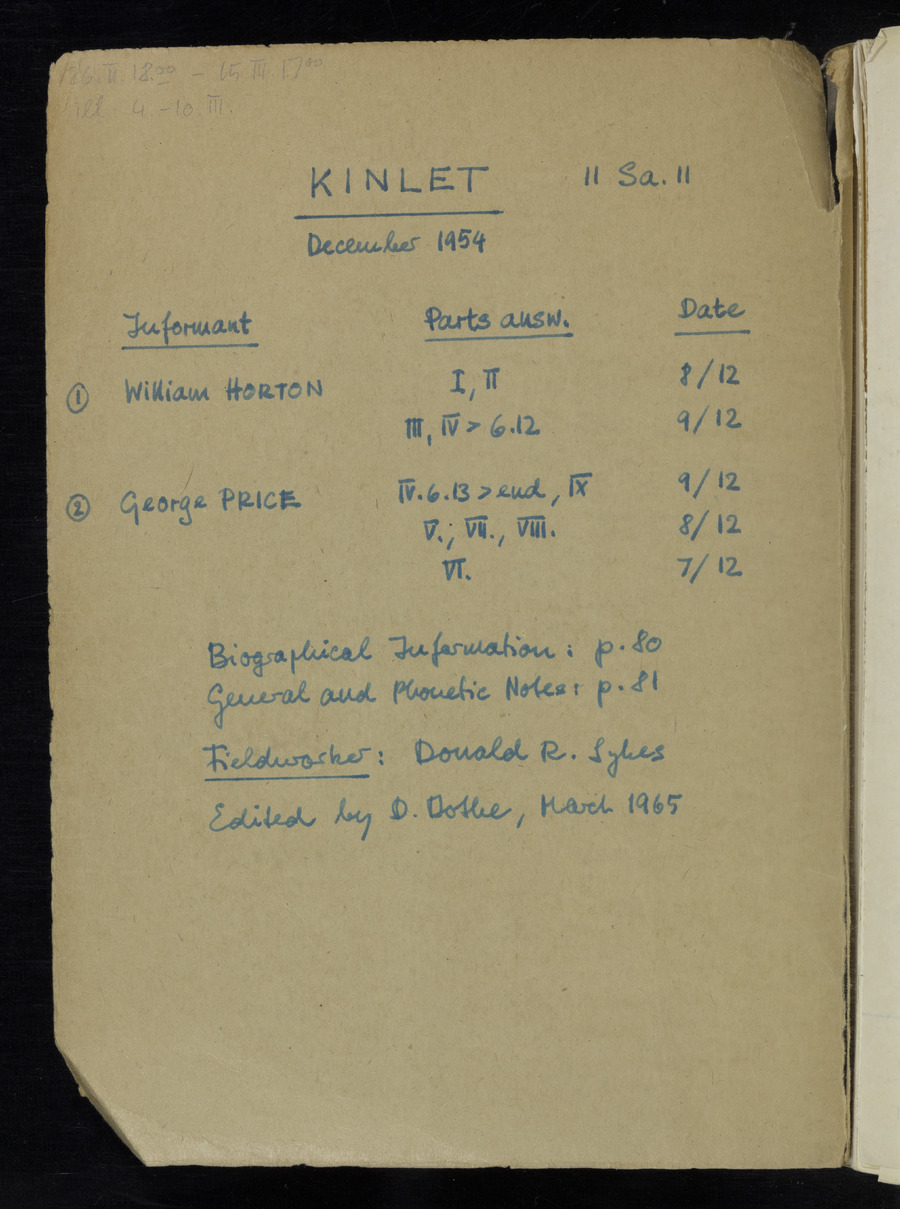 26.II.18.00 – 15 III 17 00
4. – 10. III.
KINLET 11 Sa. 11
December 1954
Informant Parts answ. Date
① William HORTON I, II 8/12
III, IV > 6.12 9/12
② George PRICE IV.6.13 > end, IX 9/12
V., VII., VIII. 8/12
VI. 7/12
Biographical Information: p. 80
General and Phonetic Notes: p. 81
Fieldworker: Donald R. Sykes
Edited by D. Bothe, March 1965